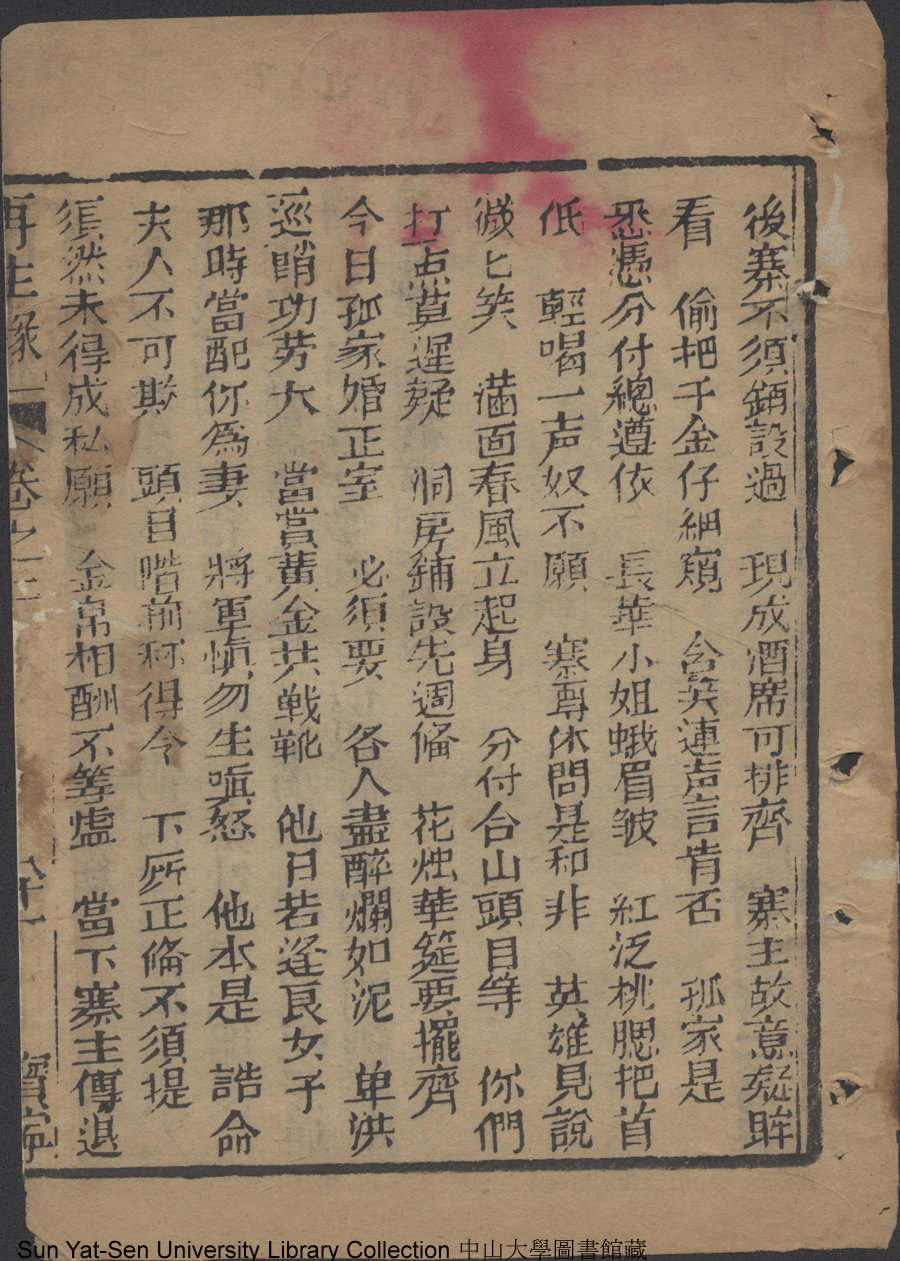 後寨不須鋪設過　現成酒席可排齊　寨主故意凝眸
看　偷把千金仔細窺　含笑連声言肯否　孤家是
悉憑分付總遵依　長華小姐蛾眉皱　紅泛桃腮把首
低　輕喝一声奴不願　寨尊休問是和非　英雄見說
微匕笑　滿面春風立起身　分付合山頭目等　你們
打点莫遲疑　洞房鋪設先週俻　花烛華筵要擺齊
今日孤家婚正室　必須要　各人盡醉爛如泥　单洪
巡哨功劳大　當賞黄金共戦靴　他日若逢良女子
那時當配你為妻　將軍慎勿生嗔怒　他本是　誥命
夫人不可欺　頭目階前称得令　下所正俻不須提
須然未得成私願　金帛相酬不等虛　當下寨主傳退
再生緣　卷之三　八十一　寶寧